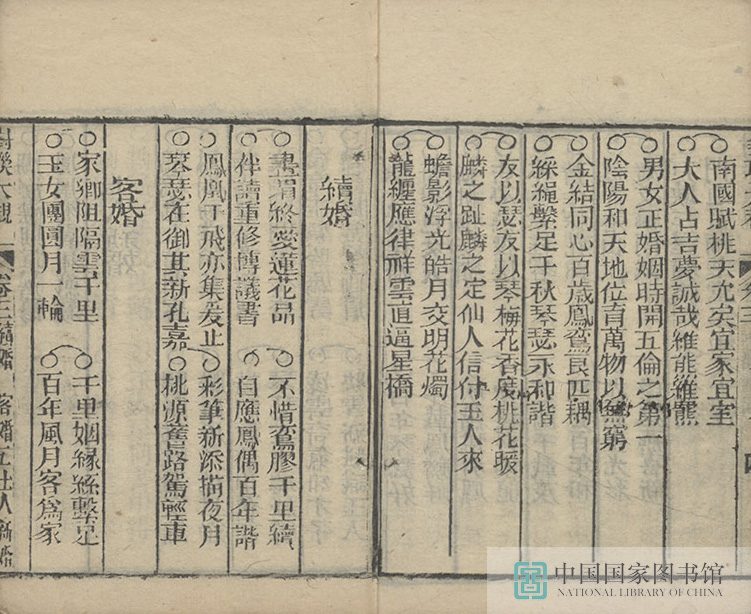 南國賦桃夭允矣宜家宜室
大人占吉夢誠哉維熊維羆
男女正婚姻時開五倫之第一
陰陽和天地位育萬物以無窮
金結同心百歲鳳鸞良匹耦
綵繩繫足千秋琴瑟永和諧
友以瑟友以琴梅花香度桃花暖
麟之趾麟之定仙人信付玉人來
蟾影浮光皓月交明花燭
龍纏應律祥雲直逼星橋
續婚
畫眉終愛蓮花品
不惜鸞膠千里續
伴讀重修博議書
自應鳳偶百年諧
鳳凰于飛亦集爰止
彩筆新添描夜月
琴瑟在御其新孔嘉
桃源舊路駕輕車
客婚
家鄉阻隔雲千里
千里姻緣絲繫足
玉女團圓月一輪
百年風月客為家
對聯大觀
卷三 續婚 客婚
中国国家图书馆
NATIONAL LIBRARY OF CHINA